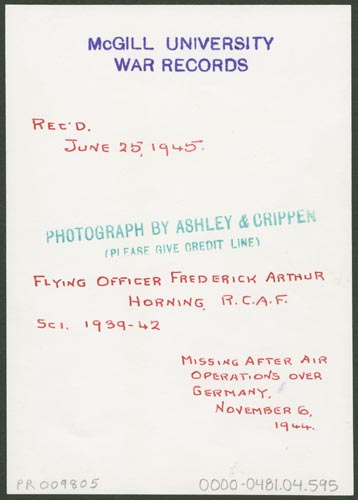 McGILL UNIVERSITY
WAR RECORDS
REC'D.
JUNE 25, 1945.
PHOTOGRAPH BY ASHLEY & CRIPPEN
(PLEASE GIVE CREDIT LINE)
FLYING OFFICER FREDERICK ARTHUR
HORNING, R.C.A.F.
SCI. 1939-42
MISSING AFTER AIR
OPERATIONS OVER
GERMANY,
NOVEMBER 6,
1944.
PR009805
0000-0481.04.595